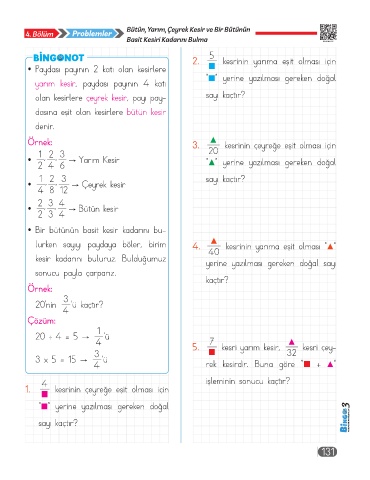 4. Bölüm
Problemler
Bütün, Yarım, Çeyrek Kesir ve Bir Bütünün
Basit Kesiri Kadarını Bulma
BİNGONOT
• Paydası payının 2 katı olan kesirlere
yarım kesir, paydası payının 4 katı
olan kesirlere çeyrek kesir, payı pay-
dasına eşit olan kesirlere bütün kesir
denir.
Örnek:
• 1/2, 2/4, 3/6 → Yarım Kesir
• 1/4, 2/8, 3/12 → Çeyrek kesir
• 2/2, 3/3, 4/4 → Bütün kesir
• Bir bütünün basit kesir kadarını bu-
lurken sayıyı paydaya böler, birim
kesir kadarını buluruz. Bulduğumuz
sonucu payla çarparız.
Örnek:
20'nin 3/4 'ü kaçtır?
Çözüm:
20 ÷ 4 = 5 → 1/4 'ü
3 x 5 = 15 → 3/4 'ü
1. 4/■ kesrinin çeyreğe eşit olması için
"■" yerine yazılması gereken doğal
sayı kaçtır?
2. 5/■ kesrinin yarıma eşit olması için
"■" yerine yazılması gereken doğal
sayı kaçtır?
3. ▲/20 kesrinin çeyreğe eşit olması için
"▲" yerine yazılması gereken doğal
sayı kaçtır?
4. ▲/40 kesrinin yarıma eşit olması "▲"
yerine yazılması gereken doğal sayı
kaçtır?
5. 7/■ kesri yarım kesir, ▲/32 kesri çey-
rek kesirdir. Buna göre "■ + ▲"
işleminin sonucu kaçtır?
BİNGO 3
131